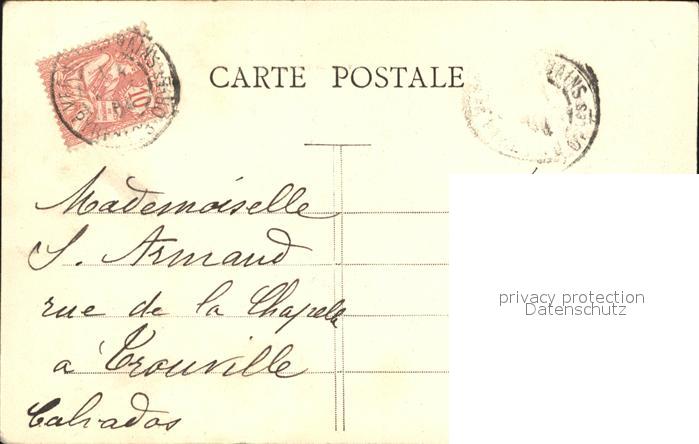 CARTE POSTALE
10
BAINS
BAINS-LES
Mademoiselle
S. Armand
rue de la Chapelle
à Trouville
Calvados
privacy protection
Datenschutz